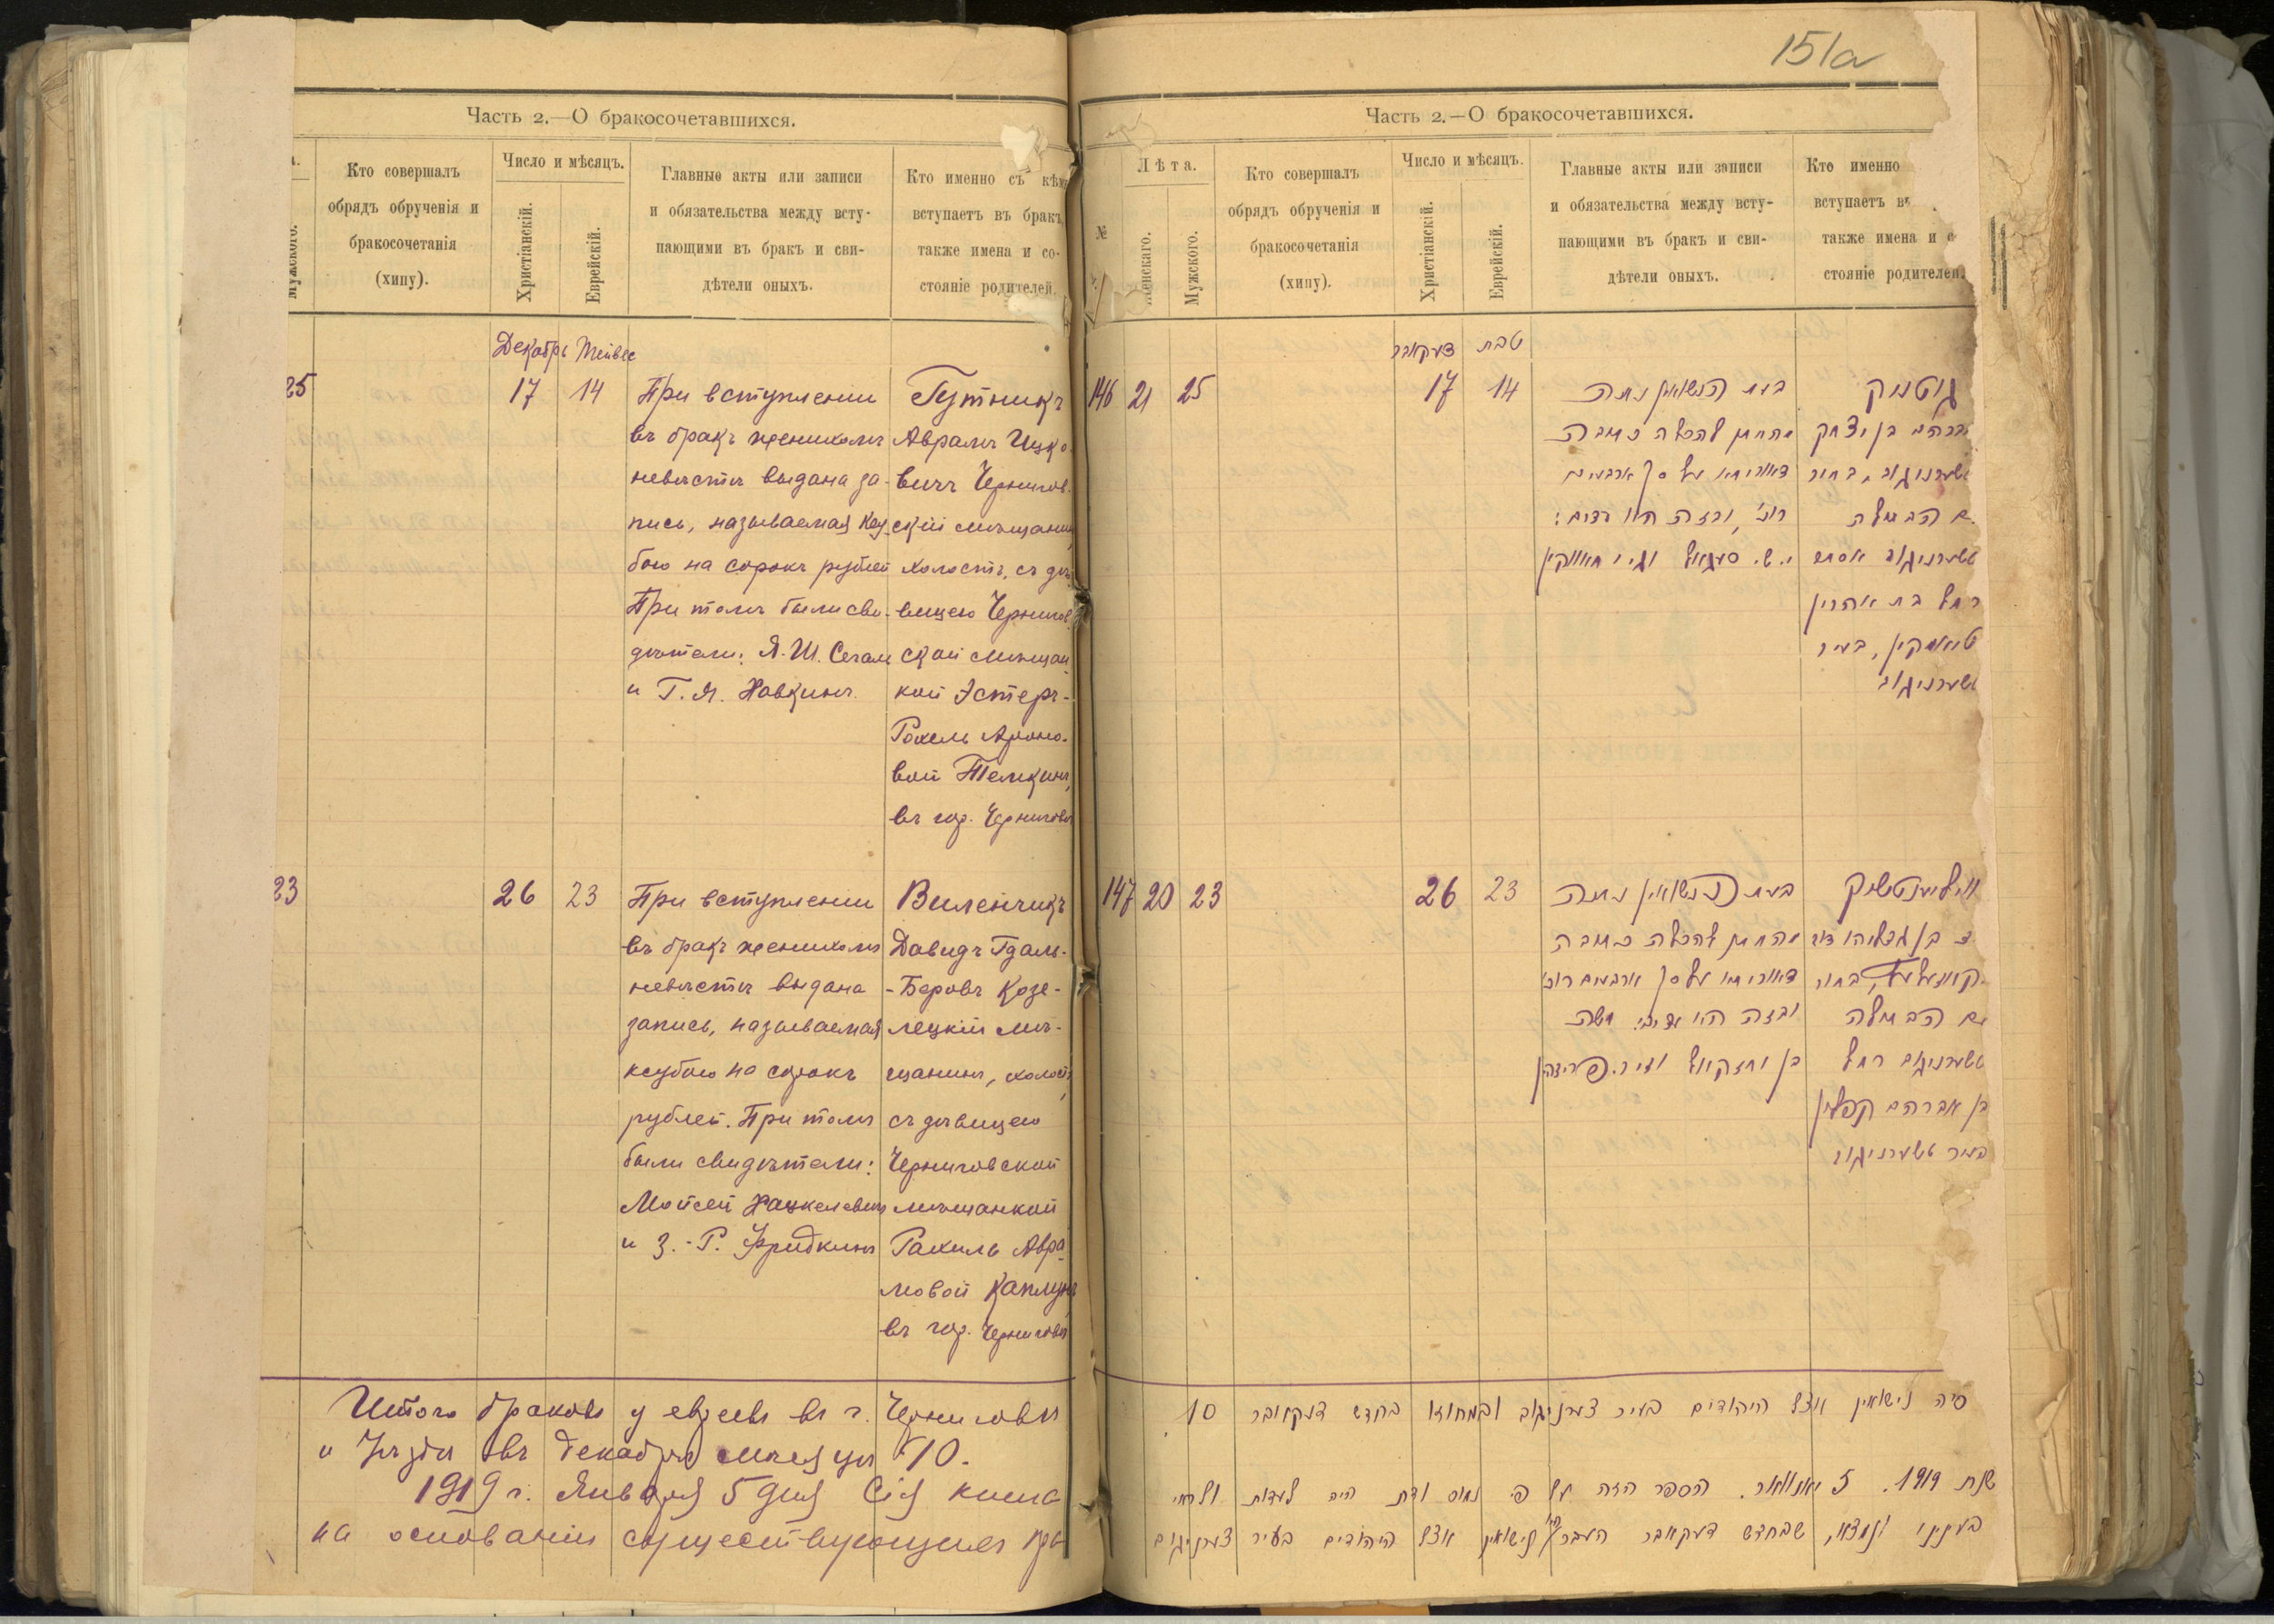 151а
Часть 2.—О бракосочетавшихся.
Мужского.
Кто совершалъ
обрядъ обрученія и
бракосочетанія
(хипу).
Число и мѣсяцъ.
Христіанскій.
Еврейскій.
Главные акты или записи
и обязательства между всту-
пающими въ бракъ и сви-
дѣтели оныхъ.
Кто именно съ кѣмъ
вступаетъ въ бракъ
также имена и со-
стояніе родителей.
Декабрь Тейвес
25
17
14
При вступленіи
въ бракъ женихомъ
невѣстѣ выдана за-
пись, называемая ксу-
бою на сорокъ рублей
При томъ были сви-
дѣтели: Я. Ш. Сегал
и Г. Я. Хавкинъ
Гутникъ
Аврамъ Ицко-
вичъ Чернигов-
скій мѣщанин
холостъ, съ дѣ-
вицею Чернигов
ской мѣщан
кой Эстеръ-
Рохель Ароно-
вой Темкинъ,
въ гор. Черниговѣ
23
26
23
При вступленіи
въ бракъ женихомъ
невѣстѣ выдана
запись, называемая
ксубою на сорокъ
рублей. При томъ
были свидѣтели:
Мойсей Хацкелевичъ
и З.-Р. Фридкинъ
Виленчикъ
Давидъ Гдаль-
-Беровъ Козе-
лецкій мѣ-
щанинъ, холост,
съ дѣвицею
Черниговской
мѣщанкой
Рахиль Авра
мовой Каплунъ
въ гор. Черниговѣ
Итого браковъ у евреевъ въ г. Черниговѣ
и Уѣздѣ въ декабрѣ мѣсяцѣ 10.
1919 г. Января 5 дня Сія книга
на основаніи существующихъ
Часть 2.—О бракосочетавшихся.
№
Лѣта.
Женскаго.
Мужского.
Кто совершалъ
обрядъ обрученія и
бракосочетанія
(хипу).
Число и мѣсяцъ.
Христіанскій.
Еврейскій.
Главные акты или записи
и обязательства между всту-
пающими въ бракъ и сви-
дѣтели оныхъ.
Кто именно
вступаетъ въ
также имена и с
стояніе родителей.
דעקאבר טבת
146
21
25
17
14
בעת הנשואין נתנה
מהחתן להכלה כתובה
דאורייתא על סך ארבעים
רוב׳, ובזה היו עדים:
י. ש. סעגאל וג. י. חאווקין
גוטניק
אברהם בן יצחק
טשערניגוב, בחור
עם הבתולה
טשערניגוב אסתר
רחל בת אהרון
טיאמקין, בעיר
טשערניגוב
147
20
23
26
23
בעת הנשואין נתנה
מהחתן להכלה כתובה
דאורייתא על סך ארבעים רוב׳
ובזה היו עדים: משה
בן יחזקאל וז. ר. פרידקין
ווילענטשיק
בן גדליהו דוב
קאזעלעץ, בחור
עם הבתולה
טשערניגוב רחל
בן אברהם קפלון
בעיר טשערניגוב
נישואין אצל היהודים בעיר צערניגוב ובמחוזו בחדש דעקאבר 10
שנת 1919. 5 יאנוואר. הספר הזה על פי
ונמצא, שבחדש דעקאבר העבר היו נישואין אצל היהודים בעיר צערניגוב